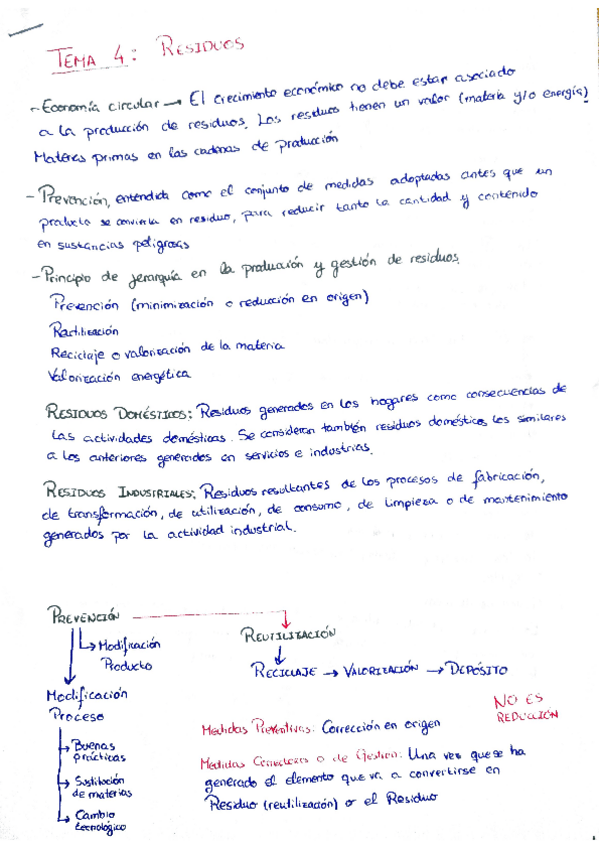 TEMA 4: RESIDUOS
- Economía circular → El crecimiento económico no debe estar asociado
a la producción de residuos. Los residuos tienen un valor (materia y/o energía)
Materias primas en las cadenas de producción
- Prevención, entendida como el conjunto de medidas adoptadas antes que un
producto se convierta en residuo, para reducir tanto la cantidad y contenido
en sustancias peligrosas
- Principio de jerarquía en la producción y gestión de residuos.
Prevención (minimización o reducción en origen)
Reutilización
Reciclaje o valorización de la materia
Valorización energética
RESIDUOS DOMÉSTICOS: Residuos generados en los hogares como consecuencias de
las actividades domésticas. Se consideran también residuos domésticos los similares
a los anteriores generados en servicios e industrias.
RESIDUOS INDUSTRIALES: Residuos resultantes de los procesos de fabricación,
de transformación, de utilización, de consumo, de limpieza o de mantenimiento
generados por la actividad industrial.
PREVENCIÓN → REUTILIZACIÓN
↳ Modificación
Producto
↓ RECICLAJE → VALORIZACIÓN → DEPÓSITO
Modificación
Proceso
→ Buenas
prácticas
→ Sustitución
de materias
→ Cambio
tecnológico
NO ES
REDUCCIÓN
Medidas Preventivas: Corrección en origen
Medidas Correctoras o de Gestión: Una vez que se ha
generado el elemento que va a convertirse en
Residuo (reutilización) or el Residuo